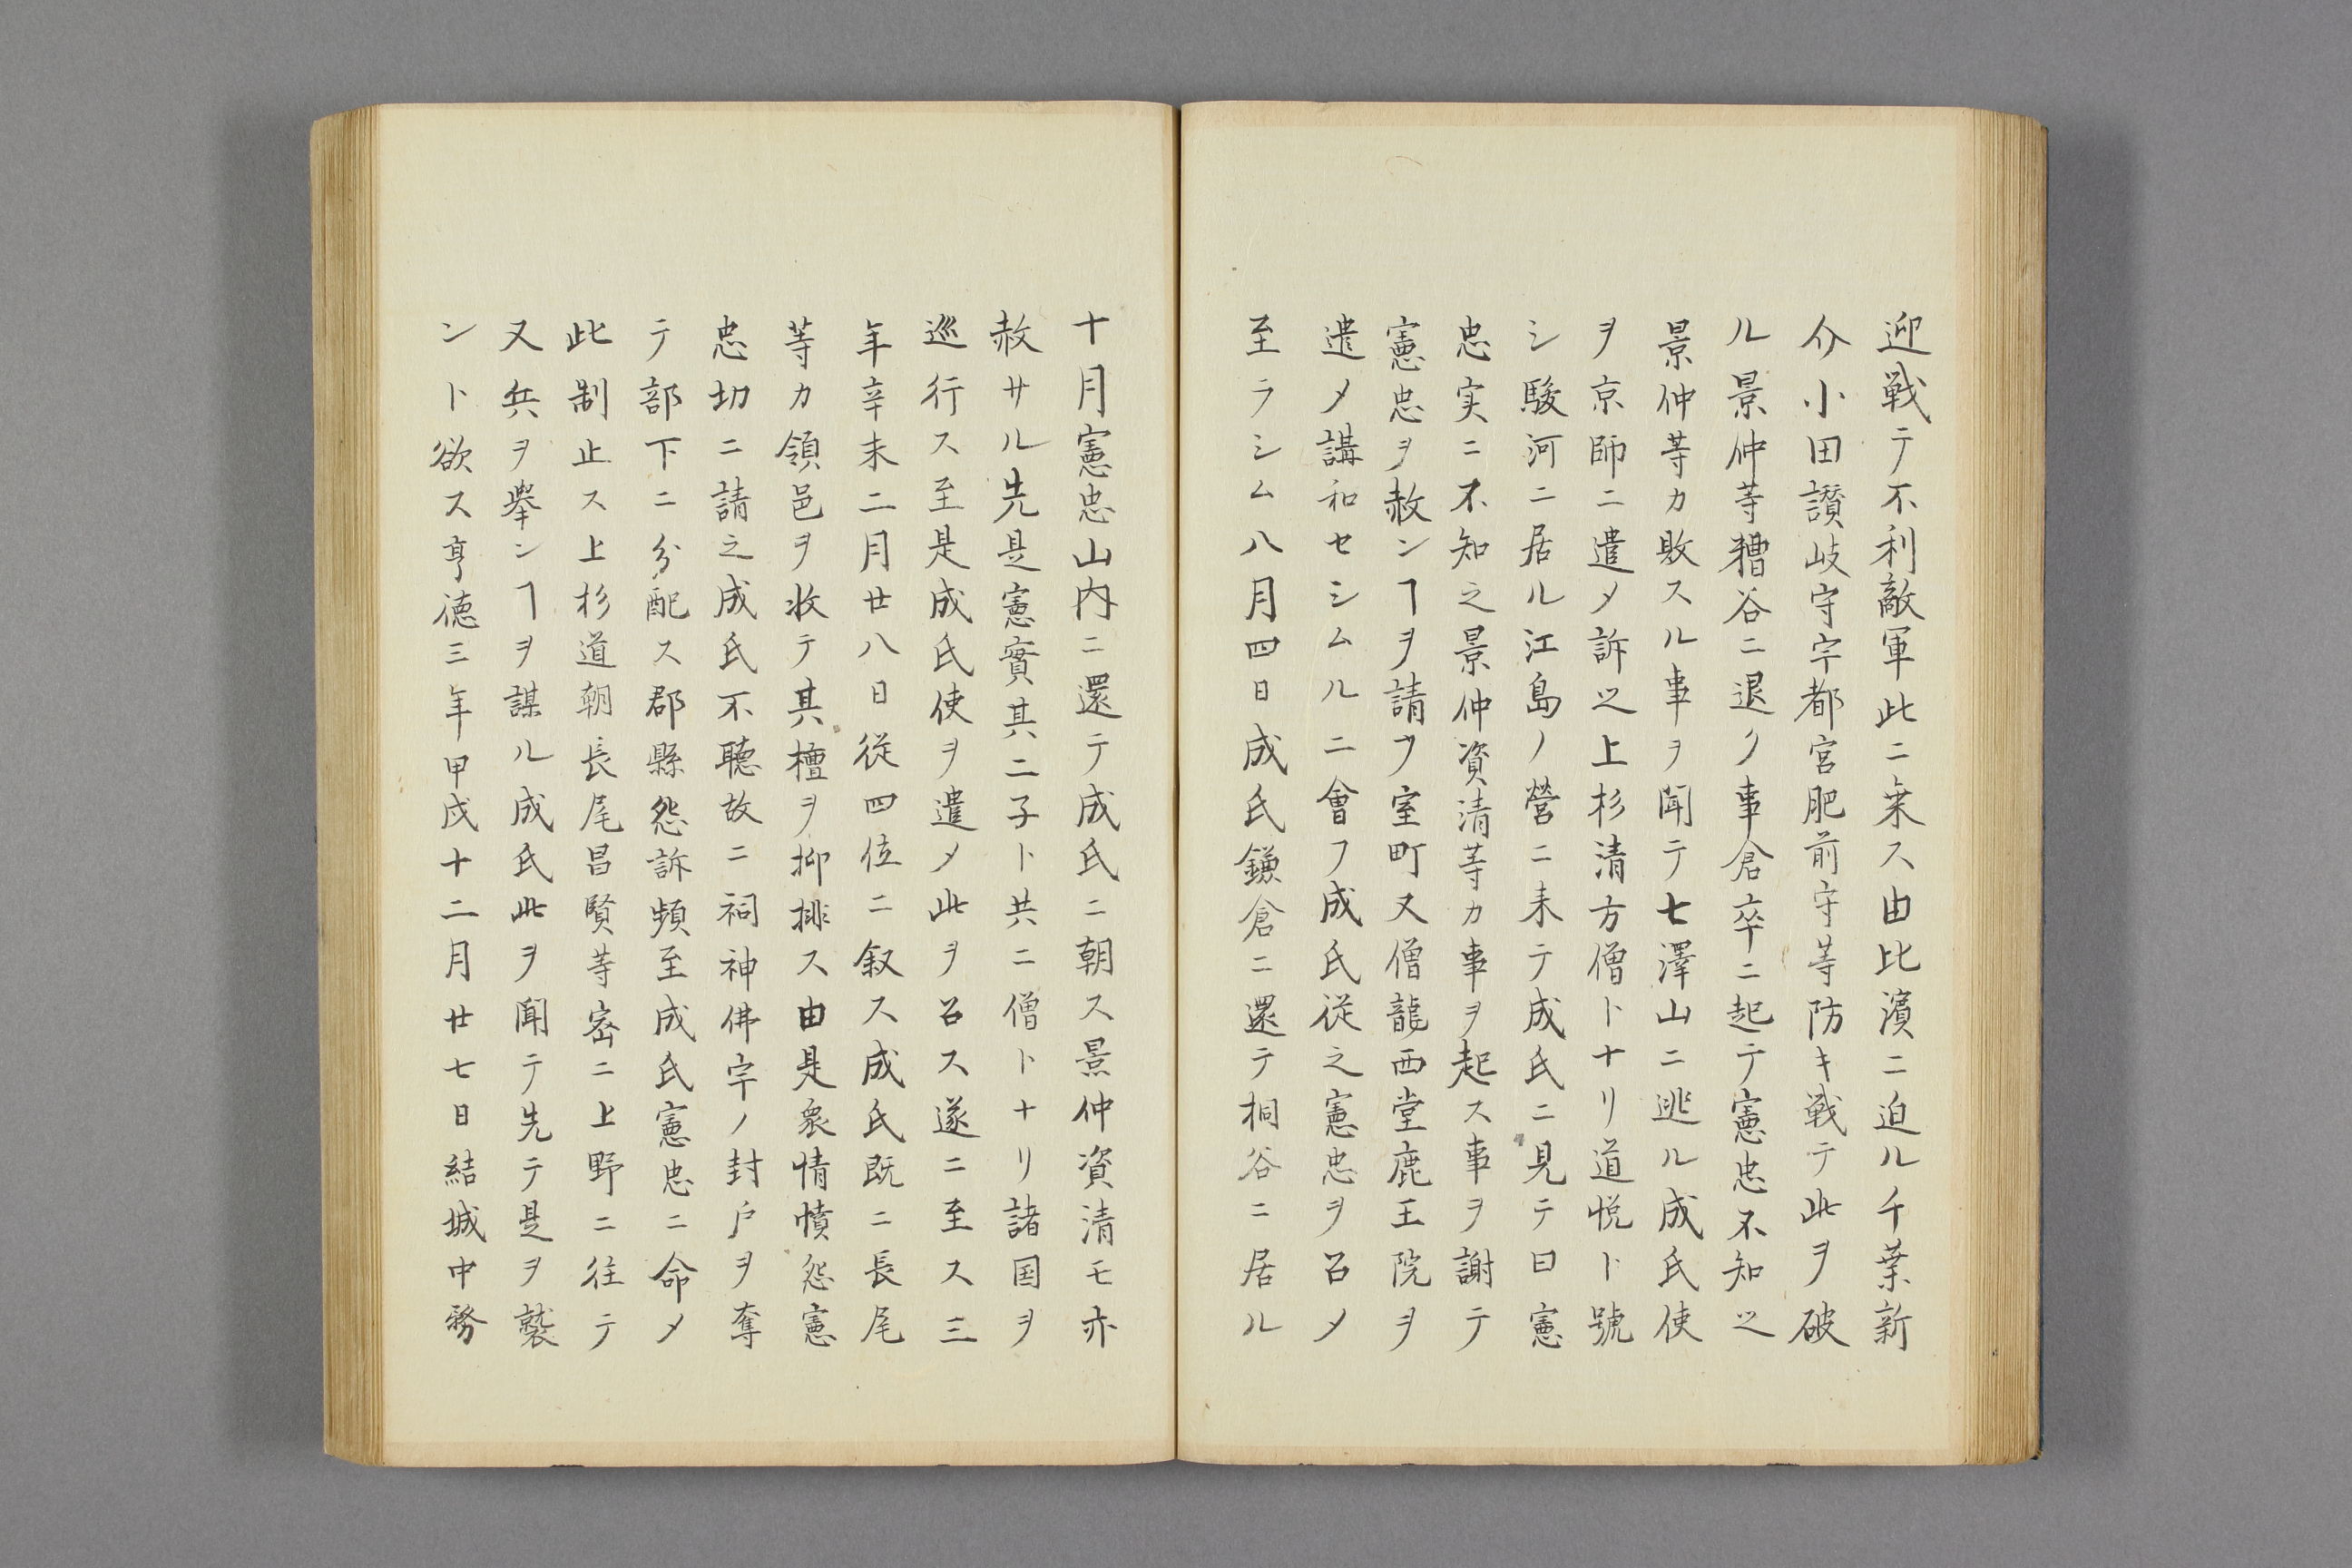 迎戦テ不利敵軍此ニ乗ス由比濱ニ迫ル千葉新
介小田讃岐守宇都宮肥前守等防キ戦テ此ヲ破
ル景仲等糟谷ニ退ク事倉卒ニ起テ憲忠不知之
景仲等カ敗スル事ヲ聞テ七澤山ニ逃ル成氏使
ヲ京師ニ遣メ訴之上杉清方僧トナリ道悦ト號
シ駿河ニ居ル江島ノ營ニ来テ成氏ニ見テ曰憲
忠実ニ不知之景仲資清等カ事ヲ起ス事ヲ謝テ
憲忠ヲ赦ンヿヲ請フ室町又僧龍西堂鹿王院ヲ
遣メ講和セシムルニ會フ成氏従之憲忠ヲ召メ
至ラシム八月四日成氏鎌倉ニ還テ桐谷ニ居ル
十月憲忠山内ニ還テ成氏ニ朝ス景仲資清モ亦
赦サル先是憲實其二子ト共ニ僧トナリ諸国ヲ
巡行ス至是成氏使ヲ遣メ此ヲ召ス遂ニ至ス三
年辛未二月廿八日従四位ニ叙ス成氏既ニ長尾
等カ領邑ヲ收テ其檀ヲ抑排ス由是衆情憤怨憲
忠切ニ請之成氏不聽故ニ祠神佛宇ノ封戸ヲ奪
テ部下ニ分配ス郡縣怨訴頻至成氏憲忠ニ命メ
此制止ス上杉道朝長尾昌賢等密ニ上野ニ往テ
又兵ヲ擧ンヿヲ謀ル成氏此ヲ聞テ先テ是ヲ襲
ント欲ス亨徳三年甲戌十二月廿七日結城中務